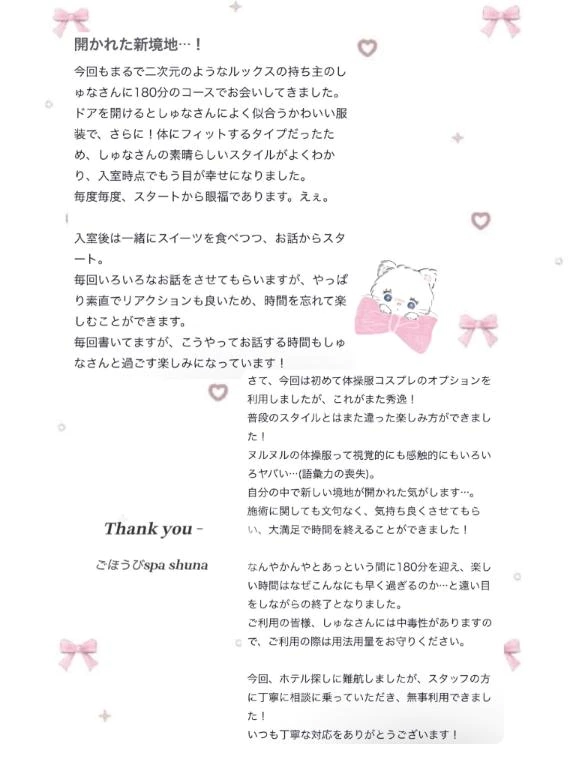 開かれた新境地…！
今回もまるで二次元のようなルックスの持ち主のし
ゅなさんに180分のコースでお会いしてきました。
ドアを開けるとしゅなさんによく似合うかわいい服
装で、さらに！体にフィットするタイプだったた
め、しゅなさんの素晴らしいスタイルがよくわか
り、入室時点でもう目が幸せになりました。
毎度毎度、スタートから眼福であります。えぇ。
入室後は一緒にスイーツを食べつつ、お話からスタ
ート。
毎回いろいろなお話をさせてもらいますが、やっぱ
り素直でリアクションも良いため、時間を忘れて楽
しむことができます。
毎回書いてますが、こうやってお話する時間もしゅ
なさんと過ごす楽しみになっています！
さて、今回は初めて体操服コスプレのオプションを
利用しましたが、これがまた秀逸！
普段のスタイルとはまた違った楽しみ方ができまし
た！
ヌルヌルの体操服って視覚的にも感触的にもいろい
ろヤバい…(語彙力の喪失)。
自分の中で新しい境地が開かれた気がします…。
施術に関しても文句なく、気持ち良くさせてもら
い、大満足で時間を終えることができました！
Thank you -
ごほうびspa shuna
なんやかんやとあっという間に180分を迎え、楽し
い時間はなぜこんなにも早く過ぎるのか…と遠い目
をしながらの終了となりました。
ご利用の皆様、しゅなさんには中毒性がありますの
で、ご利用の際は用法用量をお守りください。
今回、ホテル探しに難航しましたが、スタッフの方
に丁寧に相談に乗っていただき、無事利用できまし
た！
いつも丁寧な対応をありがとうございます！